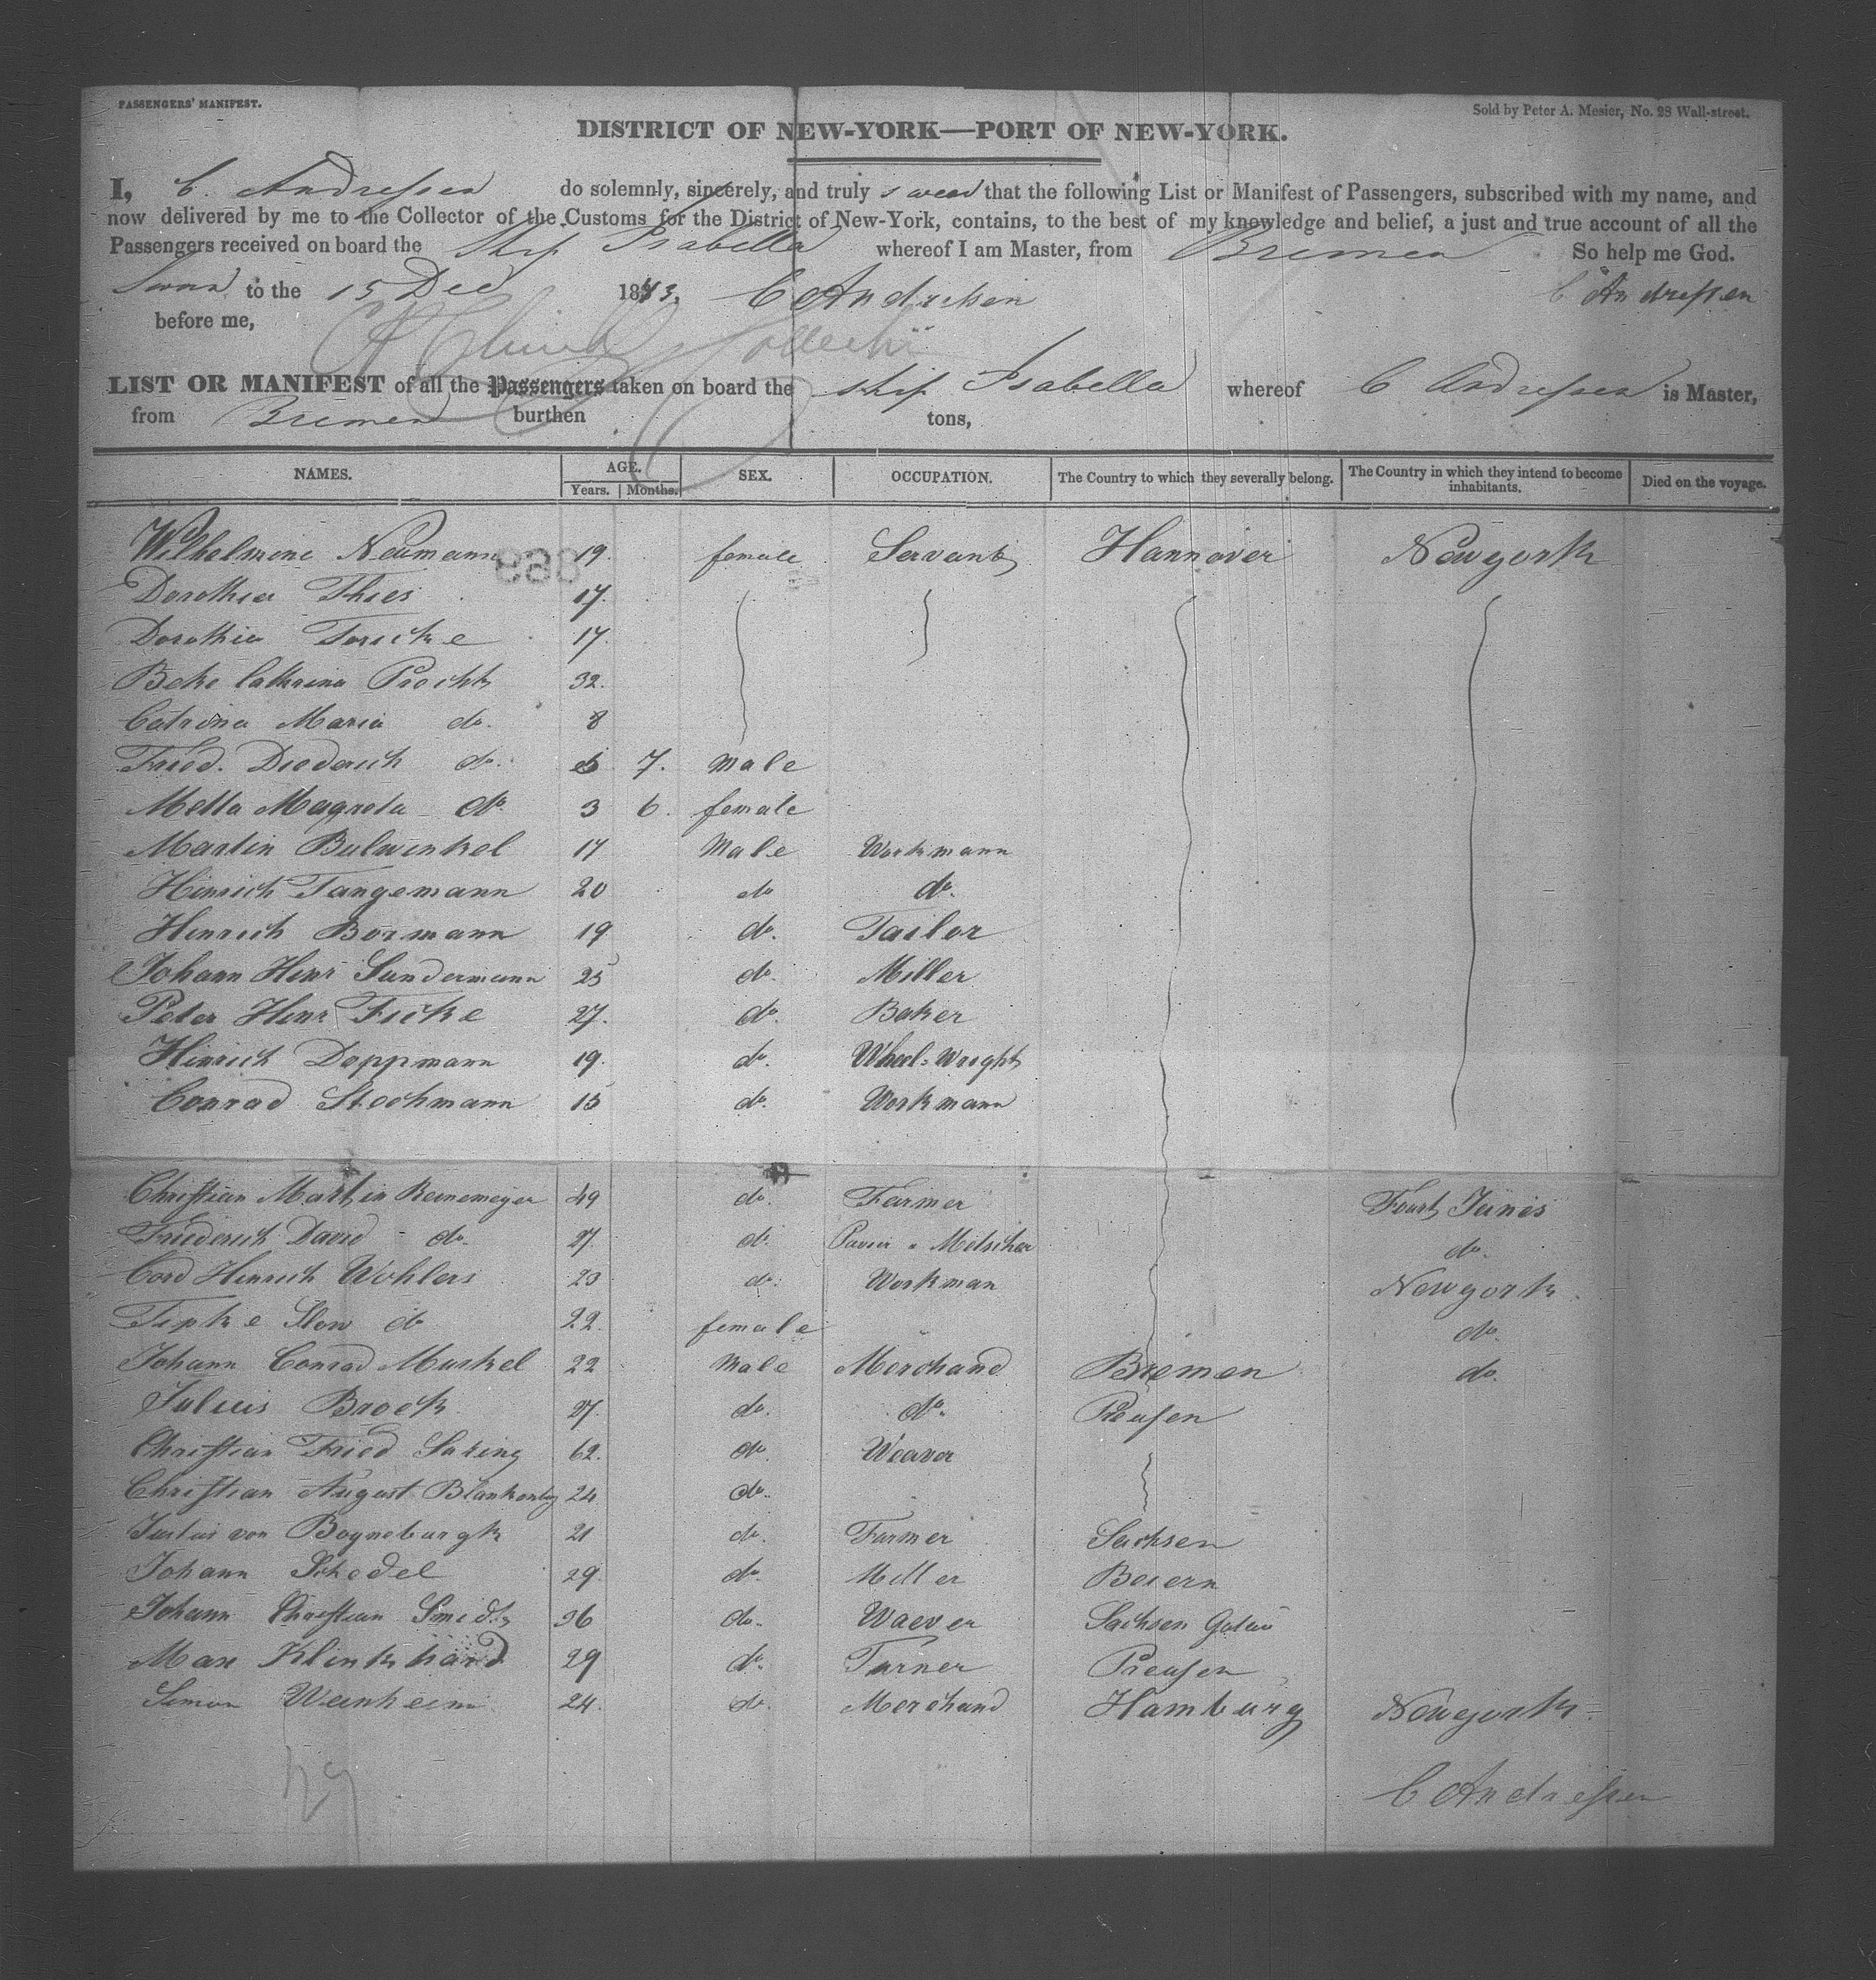 PASSENGERS' MANIFEST.
Sold by Peter A. Mesier, No. 28 Wall-street.
DISTRICT OF NEW-YORK—PORT OF NEW-YORK.
I, C. Andressen do solemnly, sincerely, and truly swear that the following List or Manifest of Passengers, subscribed with my name, and
now delivered by me to the Collector of the Customs for the District of New-York, contains, to the best of my knowledge and belief, a just and true account of all the
Passengers received on board the Ship Isabella whereof I am Master, from Bremen So help me God.
Sworn to the 15 Dec 1843. C Andressen C Andressen
before me,
LIST OR MANIFEST of all the Passengers taken on board the ship Isabella whereof C Andressen is Master,
from Bremen burthen tons,
NAMES. AGE. SEX. OCCUPATION. The Country to which they severally belong. The Country in which they intend to become inhabitants. Died on the voyage.
Years. Months.
Wilhelmine Neumann 19. female Servant Hannover Newyork
Dorothea Thies 17.
Dorothea 17.
Beke Cathrina 32.
Catrina Maria do. 8
Fried. Diederich do. 7. Male
Metta Magreta do 3 6. female
Martin Bulwinkel 17 Male Workmann
Hinrich Tangemann 20 do do.
Hinrich Bormann 19 do. Tailor
Johann Hinr Sundermann 25 do. Miller
Peter Hinr Ficke 27. do. Baker
Hinrich Doppmann 19. do. Wheel-Wright
Conrad Steohmann 15 do. Workmann
Christian Martin Reinemeyer 49 do. Farmer
Friederich David - do. 27. do. do.
Cord Hinrich Wohlers 23 do. Workman Newyork.
do 22. female do.
Johann Conrad Muskel 22 Male Merchand Bremen do.
Julius Brock 27. do. do. Preusen
Christian Fried 62. do. Weaver
Christian August 24 do.
Julius von Boyneburgk 21 do. Farmer Sachsen
Johann Schedel 29. do. Miller Beiern
Johann Christian Smidt 36 do. Waever Sachsen
Max Klinkhard 29 do. Turner Preusen
Simon Weinheim 24. do. Merchand Hamburg Newyork.
C Andressen